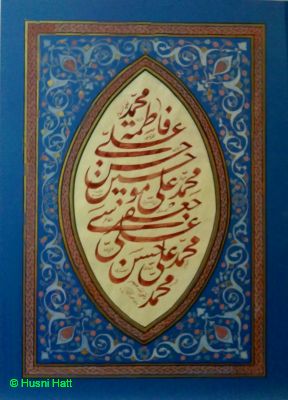 محمد
فاطمة
علی
حسن
حسین
محمد علی
جعفر موسی
علی
محمد علی حسن
محمد
© Husni Hatt